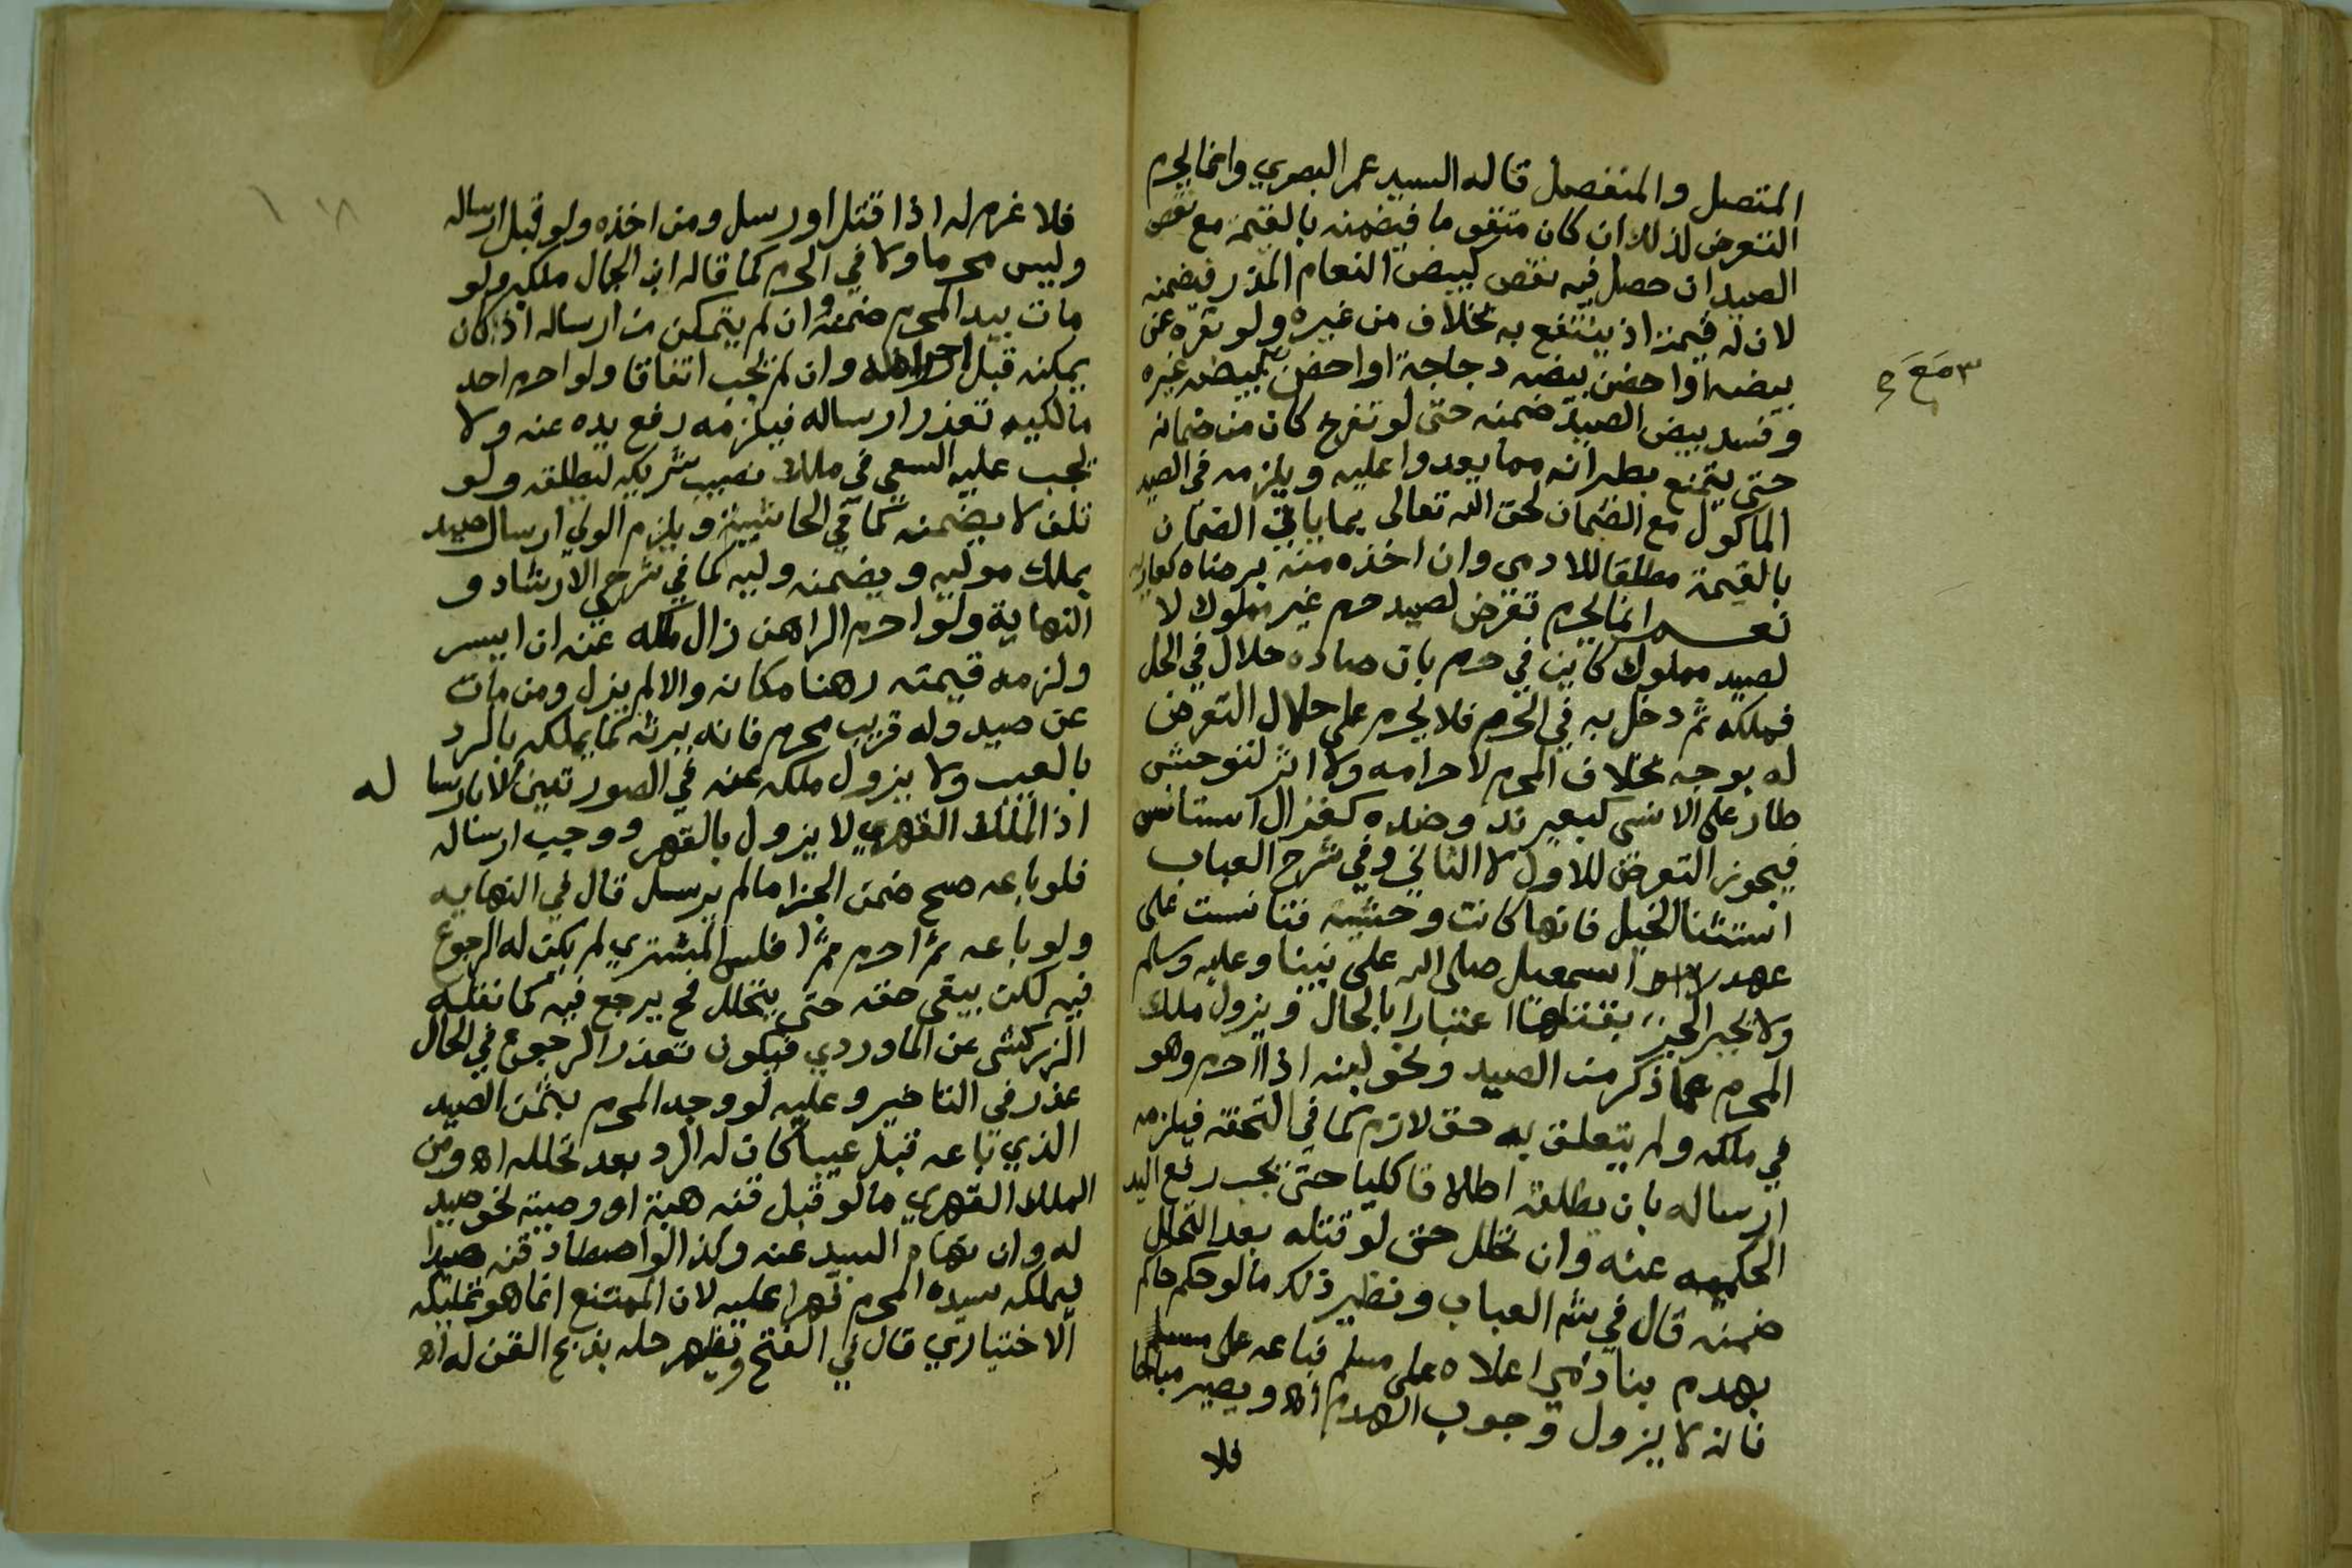 المتصل والمنفصل قاله السيد عمر البصري وانما يحرم
التعرض لذلك ان كان متقوما فيضمنه بالقيمة مع نقص
الصيد ان حصل فيه نقص كبيض النعام المذر فيضمنه
لان له قيمة اذ ينتفع به بخلاف من غيره ولو نفره عن
بيضه او احضن بيضه دجاجة او احضن بيض غيره
وفسد بيض الصيد ضمنه حتى لو تفرخ كان من ضمانه
حتى يمتنع بطيرانه مما يعدوا عليه ويلزمه في الصيد
الماكول مع الضمان لحق الله تعالى بما ياتي الضمان
بالقيمة مطلقا للادمي وان اخذه منه برضاه كعارية
نعم انما يحرم تعرض لصيد حرم غير مملوك لا
لصيد مملوك كاين في حرم بان صاده حلال في الحل
فملكه ثم دخل به في الحرم فلا يحرم على حلال التعرض
له بوجه بخلاف المحرم لاحرامه ولا اثر لتوحش
طار على الانسى كبعير ند وضده كغزال استانس
فيجوز التعرض للاول لا الثاني وفي شرح العباب
استثنا الخيل فانها كانت وحشية فتانست على
عهد اسمعيل صلى الله على نبينا وعليه وسلم
ولا يجبر بقتلها اعتبارا بالحال ويزول ملك
المحرم عما ذكر من الصيد ونحو لبنه اذا احرم وهو
في ملكه ولم يتعلق به حق لازم كما في التحفة فيلزمه
ارساله بان يطلقه اطلاقا كليا حتى يجب رفع اليد
الحكمية عنه وان تحلل حتى لو قتله بعد التحلل
ضمنه قال في شم العباب ونظير ذلك ما لو حكم حاكم
بهدم بنا ذمي اعلاه على مسلم فباعه على مسلم
فانه لا يزول وجوب الهدم اه ويصير مباحا
فلا
فلا غرم له اذا قتل او رسل ومن اخذه ولو قبل ارساله
وليس محرما ولا في الحرم كما قاله ابن الجمال ملكه ولو
مات بيد المحرم ضمنه وان لم يتمكن من ارساله اذ كان
يمكنه قبل احرامه وان لم يجب اتفاقا ولو احرم احد
مالكيه تعذر ارساله فيلزمه رفع يده عنه ولا
يجب عليه السعي في ملك نصيب شريكه ليطلقه ولو
تلف لا يضمنه كما في الحاشية ويلزم الولي ارسال صيد
يملك موليه ويضمنه وليه كما في شرحي الارشاد و
النهاية ولو احرم الراهن زال ملكه عنه ان ايسر
ولزمه قيمته رهنا مكانه والا لم يزل ومن مات
عن صيد وله قريب محرم فانه يرثه كما يملكه بالرد
بالعيب ولا يزول ملكه عنه في الصور تين الا بارسا له
اذ الملك القهري لا يزول بالقهر ووجب ارساله
فلو باعه صح ضمن الجزا ما لم يرسل قال في النهايه
ولو باعه ثم احرم ثم افلس المشتري لم يكن له الرجوع
فيه لكن يبقى حقه حتى يتحلل فح يرجع فيه كما نقله
الزركشي عن الماوردي فيكون تعذر الرجوع في الحال
عذر في التاخير وعليه لو وجد المحرم بثمن الصيد
الذي باعه قبل عيبا كان له الرد بعد تحلله اه ومن
الملك القهري ما لو قبل قنه هبة او وصية نحو صيد
له وان نهاه السيد عنه وكذا لو اصطاد قنه صيدا
يملكه سيده المحرم قهرا عليه لان الممتنع انما هو تملكه
الاختياري قال في الفتح ويظهر حله بذبح القن له اه